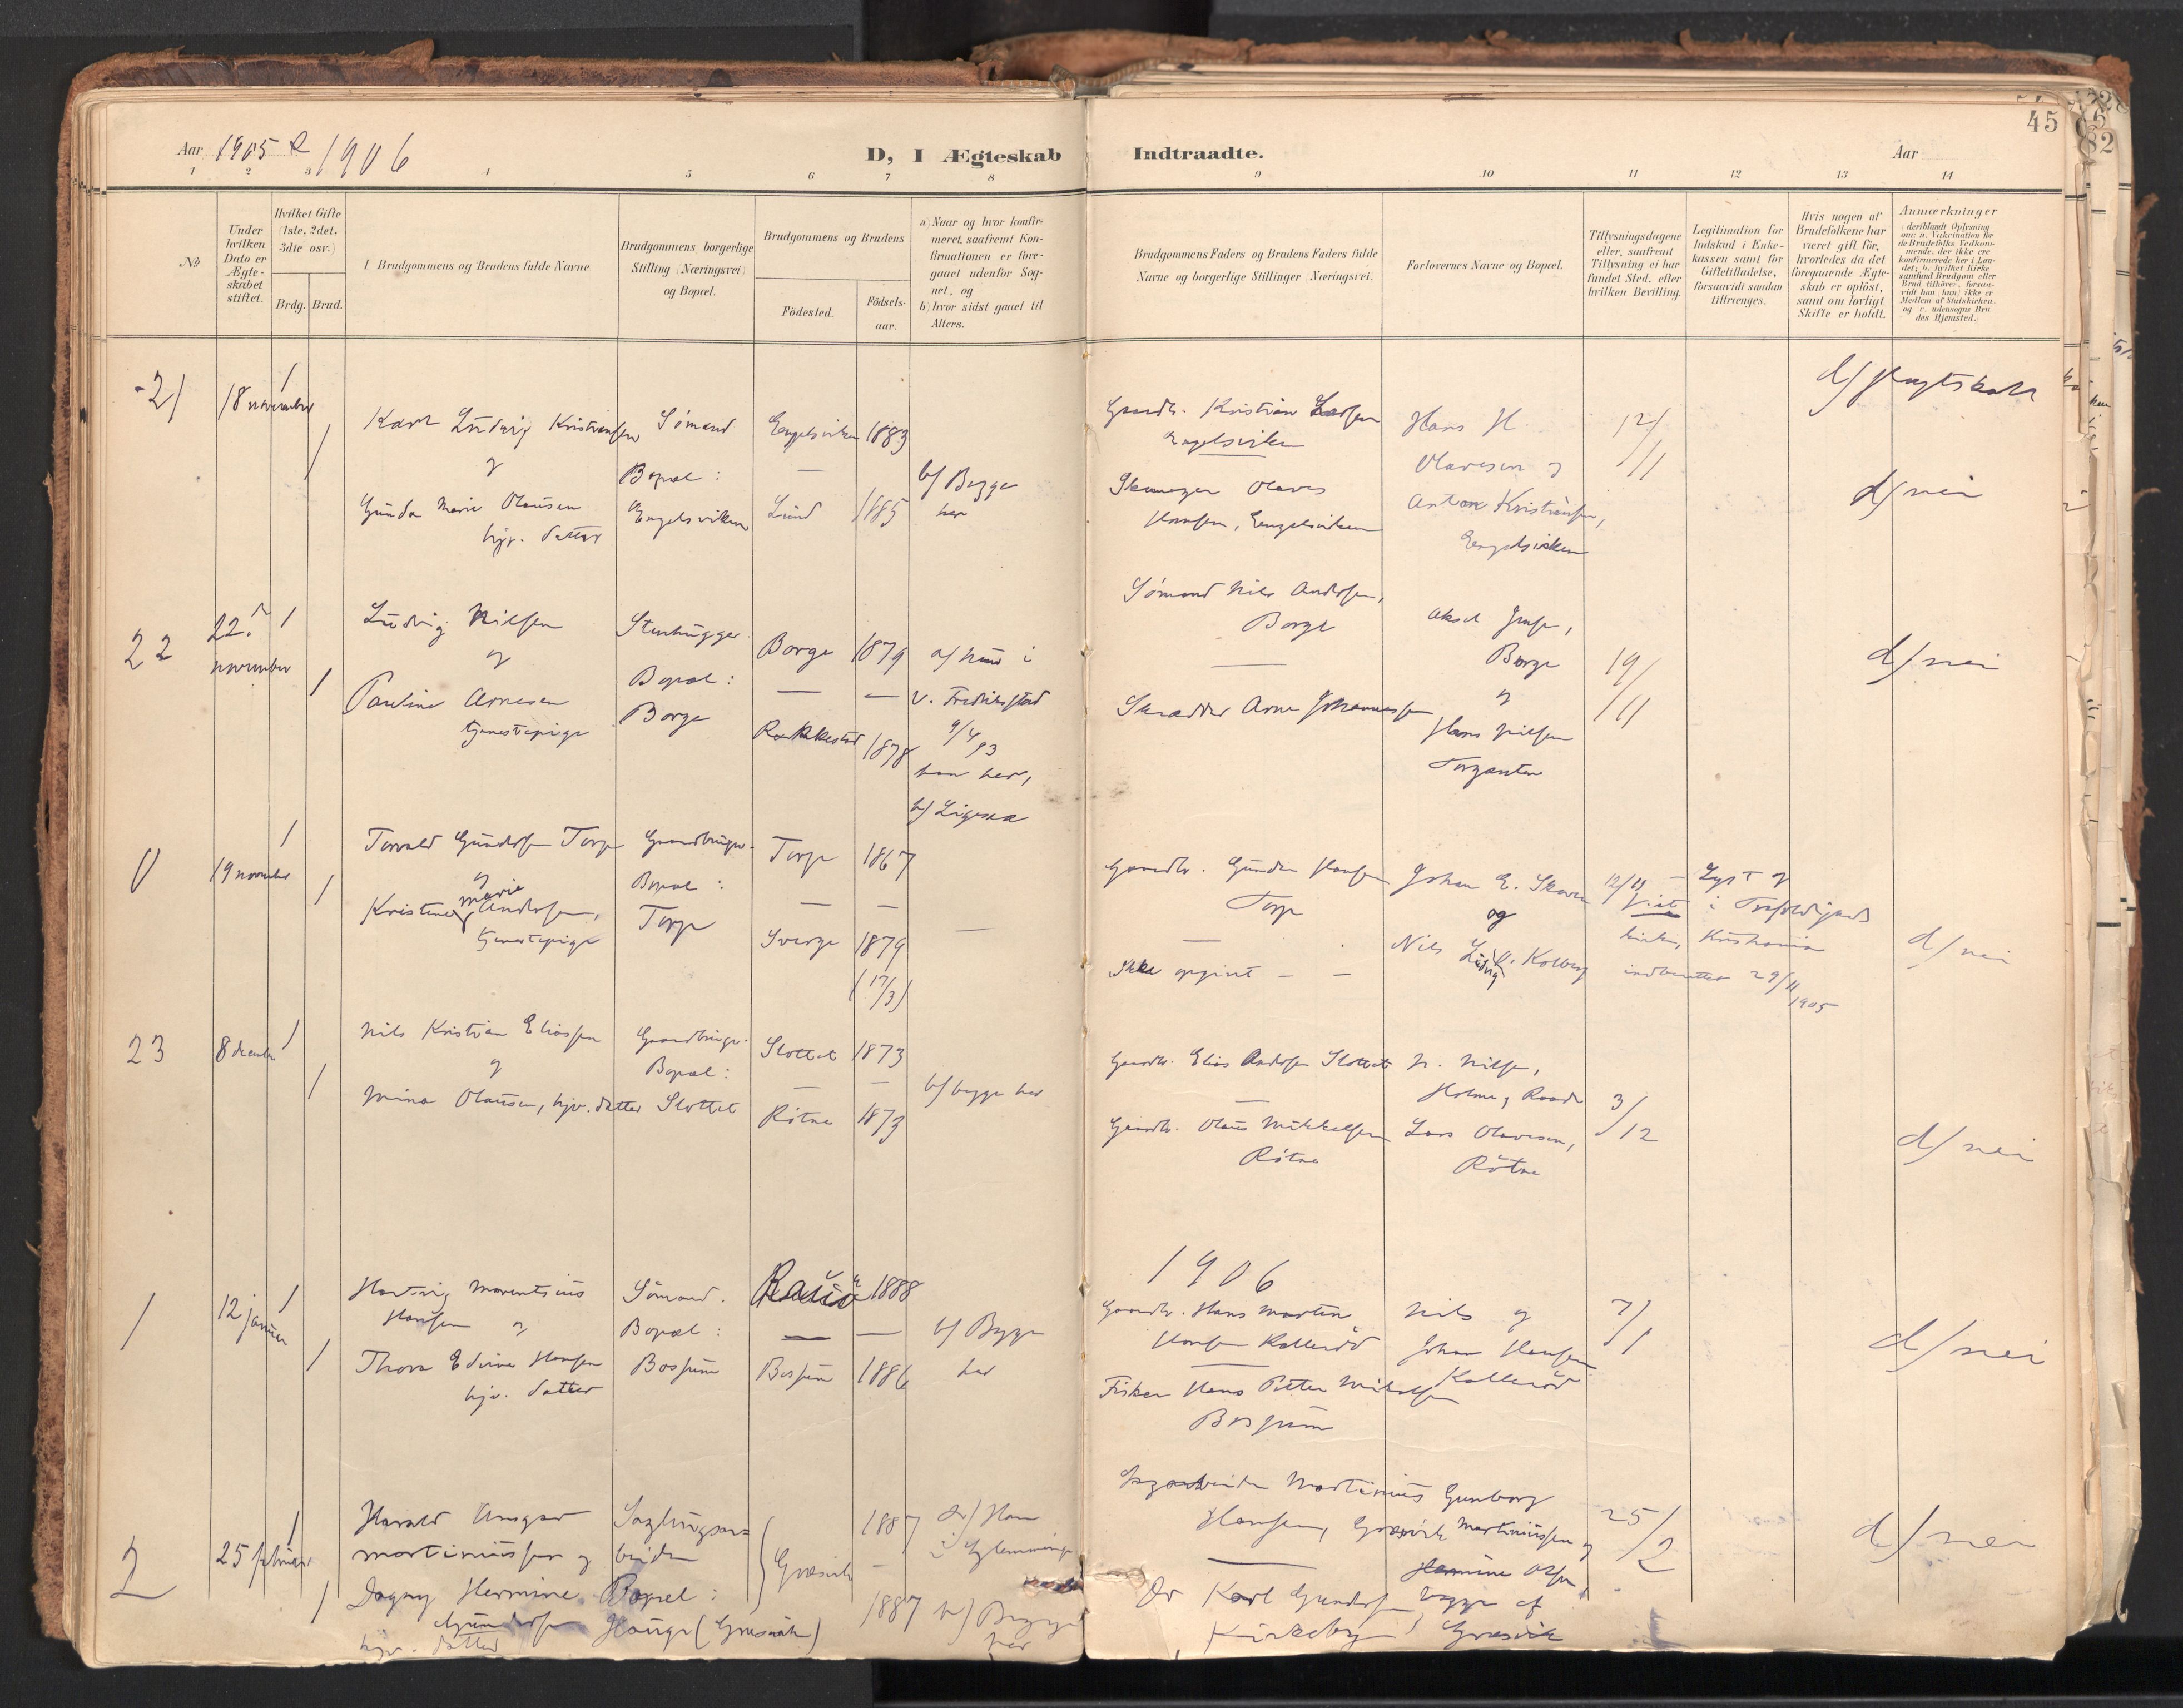 Aar 1905 & 1906
D, I Ægteskab Indtraadte.
Aar
45
1 2 3 4 5 6 7 8 9 10 11 12 13 14
No
Under hvilken Dato er Ægteskabet stiftet.
Hvilket Gifte (1ste, 2det, 3die osv.)
Brdg. Brud.
I Brudgommens og Brudens fulde Navne
Brudgommens borgerlige Stilling (Næringsvei) og Bopæl.
Brudgommens og Brudens
Födested.
Födselsaar.
a) Naar og hvor konfirmeret, saafremt Konfirmationen er foregaaet udenfor Sognet, og
b) hvor sidst gaaet til Alters.
Brudgommens Faders og Brudens Faders fulde Navne og borgerlige Stillinger (Næringsvei).
Forlovernes Navne og Bopæl.
Tillysningsdagene eller, saafremt Tillysning ei har fundet Sted, efter hvilken Bevilling.
Legitimation for Indskud i Enkekassen samt for Giftetilladelse, forsaavidt saadan tiltrænges.
Hvis nogen af Brudefolkene har været gift før, hvorledes da det foregaaende Ægteskab er oplöst, samt om lovligt Skifte er holdt.
Anmærkninger
21
18 november
1
1
Karl Ludvig Kristiansen
og
Gunda Marie Olausen
hjv. datter
Sømand
Bopæl:
Engelsviken
Engelsviken 1883
Lund 1885
b/ Begge
her
Gaardb. Kristian Larsen
Engelsviken
Skomager Olaves
Hansen, Engelsviken
Hans H.
Olavesen og
Anton Kristiansen,
Engelsviken
12/11
d/ nei
22
22.
november
1
1
Ludvig Nilsen
og
Pauline Arnesen
tjenestepige
Stenhugger
Bopæl:
Borge
Borge 1879
Rakkestad 1878
a/ hun i
v. Fredrikstad
9/4 93
han her,
b/ Ligesaa
Sømand Nils Andersen,
Borge
Skrædder Arne Johannessen
Aksel
Borge
og
Hans Nilsen
19/11
d/ nei
0
19 november
1
1
Torvald Gundersen Torp
og
Kristine Marie Andersen,
tjenestepige
Gaardbruger.
Bopæl:
Torp
Torp 1867
Sverge 1879
(17/3)
Gaardb. Gunder Hansen
Torp
Ikke opgivet
Johan E. Skaven
og
Nils Ludvig K. Kolberg
12/11 Lyst og
viet i Trefoldigheds
kirken, Kristiania
indberettet 29/11
1905
d/ nei
23
8 december
1
1
Nils Kristian Eliassen
og
Mina Olausen, hjv. datter
Gaardbruger.
Bopæl:
Slottet
Slottet 1873
Rötne 1873
b/ begge her
Gaardb. Elias Andersen Slottet
Gaardb. Olaus Mikkelsen
Rötne
N. Nilsen,
Holme, Raade
Lars Olavesen,
Rötne
3/12
d/ nei
1906
1
12 januar
1
1
Hartvig Marentsius
Hansen og
Thora Edine Hansen
hjv. datter
Sömand.
Bopæl:
Bossum
Rauö 1888
Bossum 1886
b/ Begge
her
Gaardb. Hans Martin
Hansen Kalleröd
Fisker Hans Petter Mikalsen
Bossum
Nils og
Johan Hansen
Kalleröd
7/1
d/ nei
2
25 februar
1
1
Harald Ansgar
Martiniussen og
Dagny Hermine
Gundersen
hjv. datter
Sagbrugsarbeider
Bopæl:
Hauge (Græsvik)
Græsvik
1887
1887
a/ Han
i Glemminge
b/ Begge
her
Sagarbeider Martinius
Hansen, Græsvik
Karl Gundersen
Kirkeby
Gunborg
Martiniussen og
Hermine Olsen,
begge af
Græsvik
25/2
d/ nei